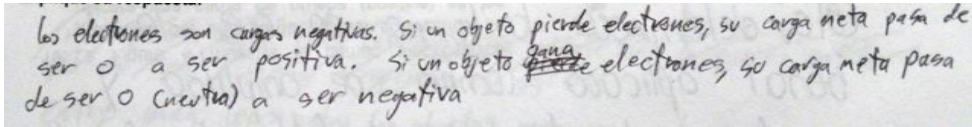 los electrones son cargas negativas. Si un objeto pierde electrones, su carga neta pasa de
ser 0 a ser positiva. Si un objeto gana electrones, su carga neta pasa
de ser 0 (neutra) a ser negativa